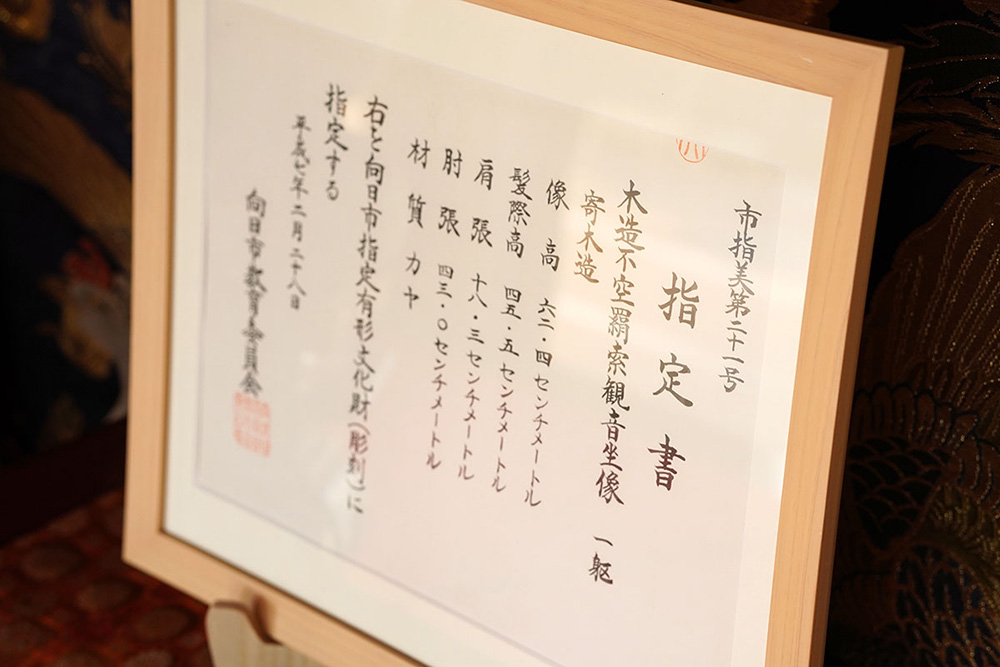 市指美第二十一号
指定書
木造不空羂索観音坐像 一躯
寄木造
像高 六二・四センチメートル
髪際高 四五・五センチメートル
肩張 十八・三センチメートル
肘張 四三・〇センチメートル
材質 カヤ
右を向日市指定有形文化財(彫刻)に
指定する
平成七年二月二十八日
向日市教育委員会